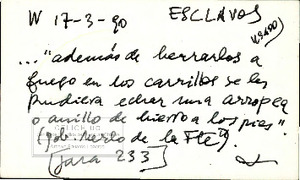 W 17-3-90 ESCLAVOS
... "además de herrarlos a
fuego en los carrillos se les
pudiera echar una arropea
o anillo de hierro a los pies"
(gob. nerto de la Fte).
(Jara 233)